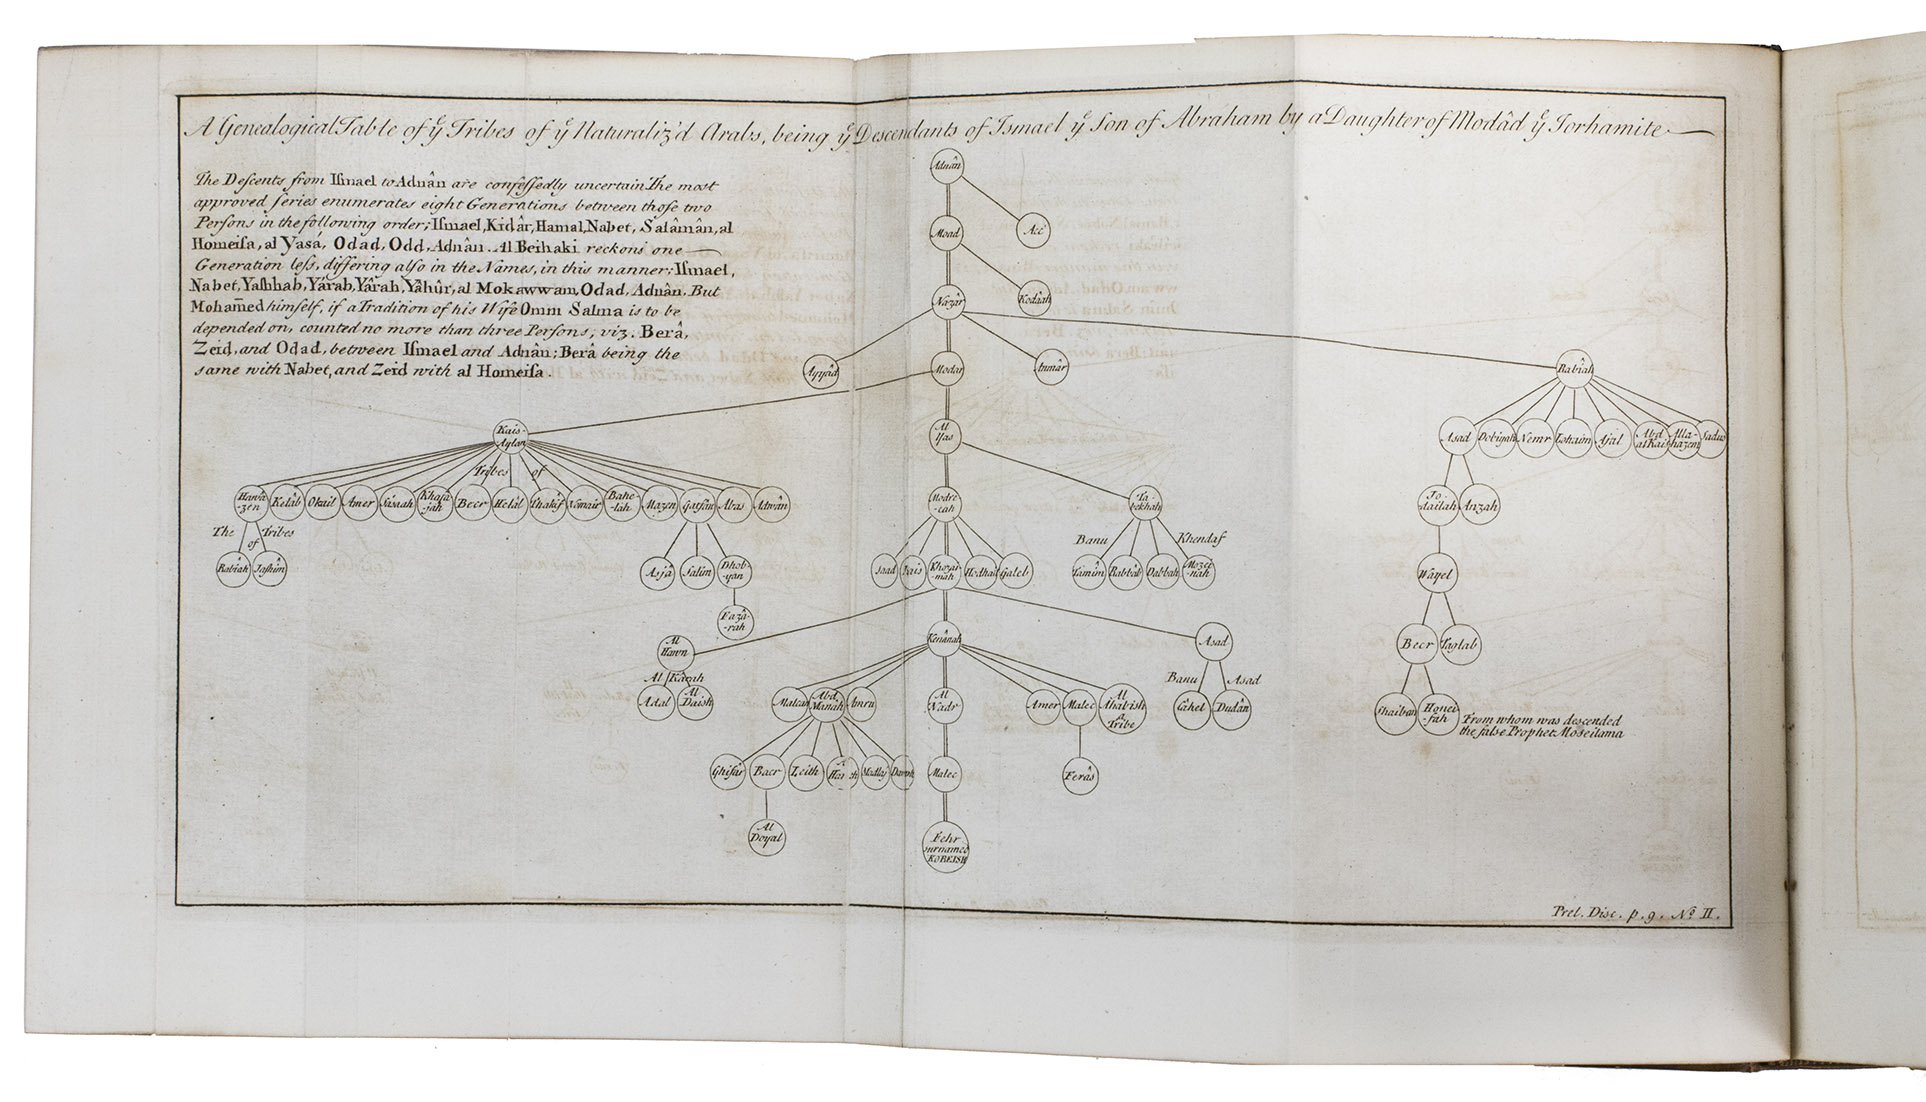 A Genealogical Table of yͤ Tribes of yͤ Naturaliz'd Arabs, being yͤ Descendants of Ismael yͤ Son of Abraham by a Daughter of Modâd yͤ Jorhamite
The Deſcents from Iſmael to Adnân are confeſſedly uncertain. The most
approved ſeries enumerates eight Generations between thoſe two
Perſons in the following order; Iſmael, Kidâr, Hamal, Nabet, Salâmân, al
Homeiſa, al Yasá, Odad, Odd, Adnân. Al Beihaki reckons one
Generation leſs, differing alſo in the Names, in this manner; Iſmael,
Nabet, Yaſhhab, Yârab, Yârah, Yâhûr, al Mokawwam, Odad, Adnân. But
Mohammed himſelf, if a Tradition of his Wife Omm Salma is to be
depended on, counted no more than three Perſons, viz. Berâ,
Zeid, and Odad, between Iſmael and Adnân; Berâ being the
same with Nabet, and Zeid with al Homeiſa.
Adnân
Moad
Acc
Nazâr
Kodâah
Ayyâd
Modar
Anmâr
Rabîah
Kais-
Aylan
Al
Yas
Asad
Dobiyah
Nemr
Lohaim
Ajal
Abd
al Kais
Alla-
hazem
Sadus
Tribes of
Hawâ
-zen
Kelâb
Okail
Amer
Sásaah
Khafâ
-jah
Becr
Helâl
Thakîf
Nomair
Bahe-
-lah
Mazen
Gatfân
Abas
Adwân
Modre
-cah
Ta-
bekhah
Jo-
dailah
Anzah
The of Tribes
Rabîah
Jashim
Asjâ
Salim
Dhob-
-yan
Saad
Kais
Khozai-
-mah
Hodhail
Galeb
Banu Khendaf
Tamîm
Rabbâb
Dabbah
Mozei
-nah
Wayel
Fazâ-
-rah
Al
Hawn
Kenânah
Asad
Becr
Taglab
Al Karah
Adal
Al
Daish
Malcan
Abd
Manâh
Amru
Al
Nadr
Amer
Malec
Al
Ahabish
a
Tribe
Banu Asad
Câhel
Dudân
Shaiban
Honei
-fah
From whom was descended
the falſe Prophet Moseilama
Ghifâr
Becr
Leith
Modlaj
Malec
Ferâs
Al
Doyal
Fehr
surnamed
KOREISH
Prel. Disc. p. 9. Nº II.